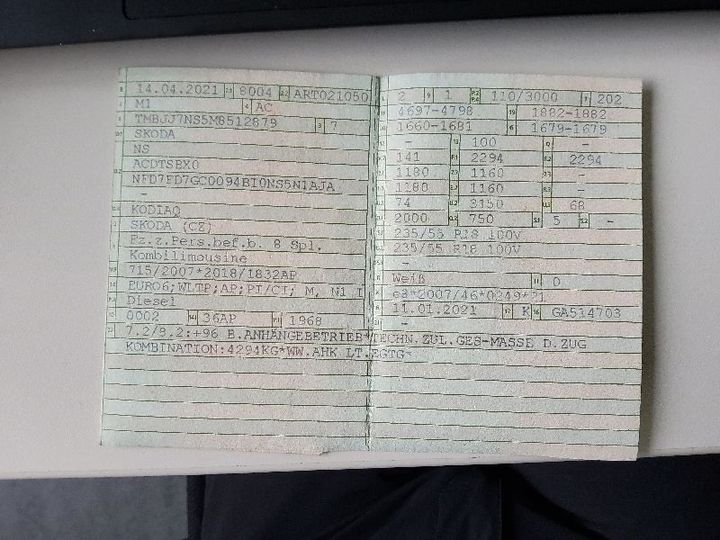 14.04.2021 8004 ART021050
M1 AC
TMBJJ7NS5M8512879 7
SKODA
NS
ACDTSBX0
NFD7FD7GC0094BI0NS5N1AJA
-
KODIAQ
SKODA (CZ)
Fz.z.Pers.bef.b. 8 Spl.
Kombilimousine
715/2007*2018/1832AP
EURO6;WLTP;AP;PI/CI; M, N1 I
Diesel
0002 36AP 1968
2 1 110/3000 202
4697-4798 1882-1882
1660-1681 1679-1679
- 100 -
141 2294 2294
1180 1160 -
1180 1160 -
74 3150 68
2000 750 5 -
235/55 R18 100V
235/55 R18 100V
-
Weiß 0
e8*2007/46*0249*21
11.01.2021 K GA514703
-
7.2/8.2:+96 B.ANHÄNGEBETRIEB*TECHN.ZUL.GES-MASSE D.ZUG
KOMBINATION:4294KG*WW.AHK LT.EGTG*